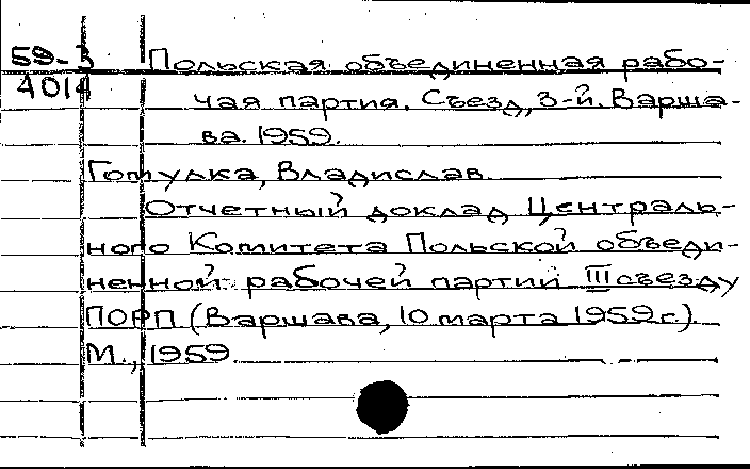 59-3 Польская объединенная рабо-
4014 чая партия. Съезд, 3-й. Варша-
ва. 1959.
Гомулка, Владислав
Отчетный доклад Централь-
ного Комитета Польской объеди-
ненной рабочей партии III съезду
ПОРП (Варшава, 10 марта 1959 г.).
М., 1959.